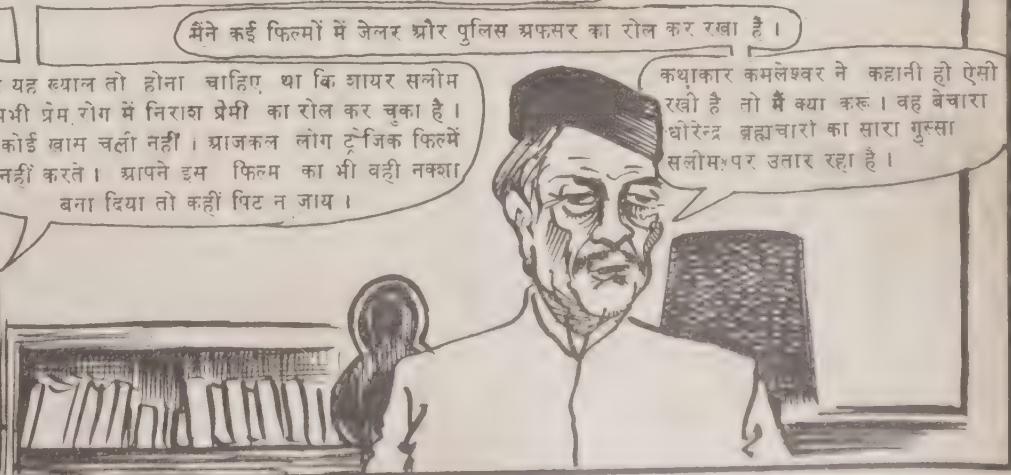 मैंने कई फिल्मों में जेलर और पुलिस अफसर का रोल कर रखा है ।
यह ख्याल तो होना चाहिए था कि शायर सलीम
भी प्रेम रोग में निराश प्रेमी का रोल कर चुका है ।
कोई खास चली नहीं । आजकल लोग ट्रेजिक फिल्में
नहीं करते । आपने इस फिल्म का भी वही नक्शा
बना दिया तो कहीं पिट न जाय ।
कथाकार कमलेश्वर ने कहानी ही ऐसी
रखी है तो मैं क्या करूं । वह बेचारा
धीरेन्द्र ब्रह्मचारी का सारा गुस्सा
सलीम पर उतार रहा है ।